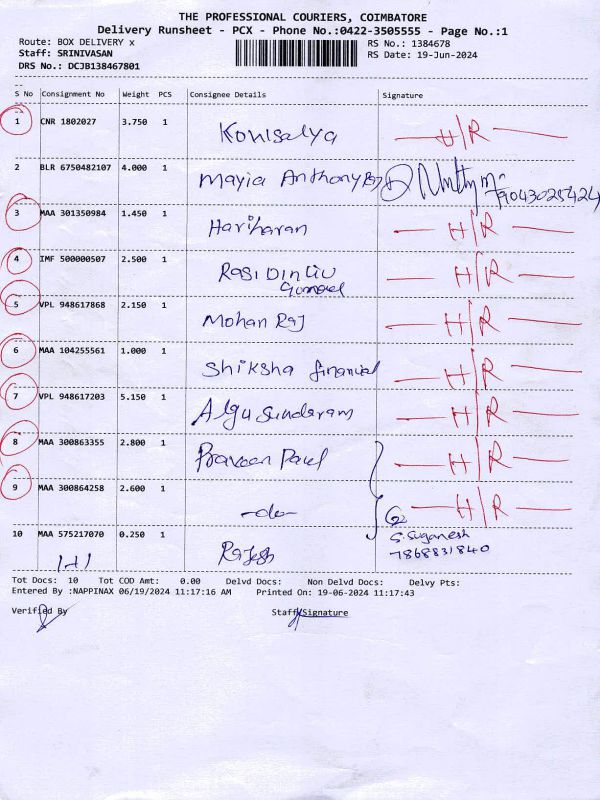 THE PROFESSIONAL COURIERS, COIMBATORE
Delivery Runsheet - PCX - Phone No.:0422-3505555 - Page No.:1
Route: BOX DELIVERY x RS No.: 1384678
Staff: SRINIVASAN RS Date: 19-Jun-2024
DRS No.: DCJB138467801
S No Consignment No Weight PCS Consignee Details Signature
1 CNR 1802027 3.750 1 Konisalya H/R
2 BLR 6750482107 4.000 1 Mayia Anthony 9043025424
3 MAA 301350984 1.450 1 Hariharan H/R
4 IMF 500000507 2.500 1 H/R
5 VPL 948617868 2.150 1 Mohan Raj H/R
6 MAA 104255561 1.000 1 Shiksha financial H/R
7 VPL 948617203 5.150 1 Algu Sundaram H/R
8 MAA 300863355 2.800 1 Praveen Paul H/R
9 MAA 300864258 2.600 1 -do- H/R
10 MAA 575217070 0.250 1 Rajesh S. Suganesh
7868831840
Tot Docs: 10 Tot COD Amt: 0.00 Delvd Docs: Non Delvd Docs: Delvy Pts:
Entered By :NAPPINAX 06/19/2024 11:17:16 AM Printed On: 19-06-2024 11:17:43
Verified By Staff Signature